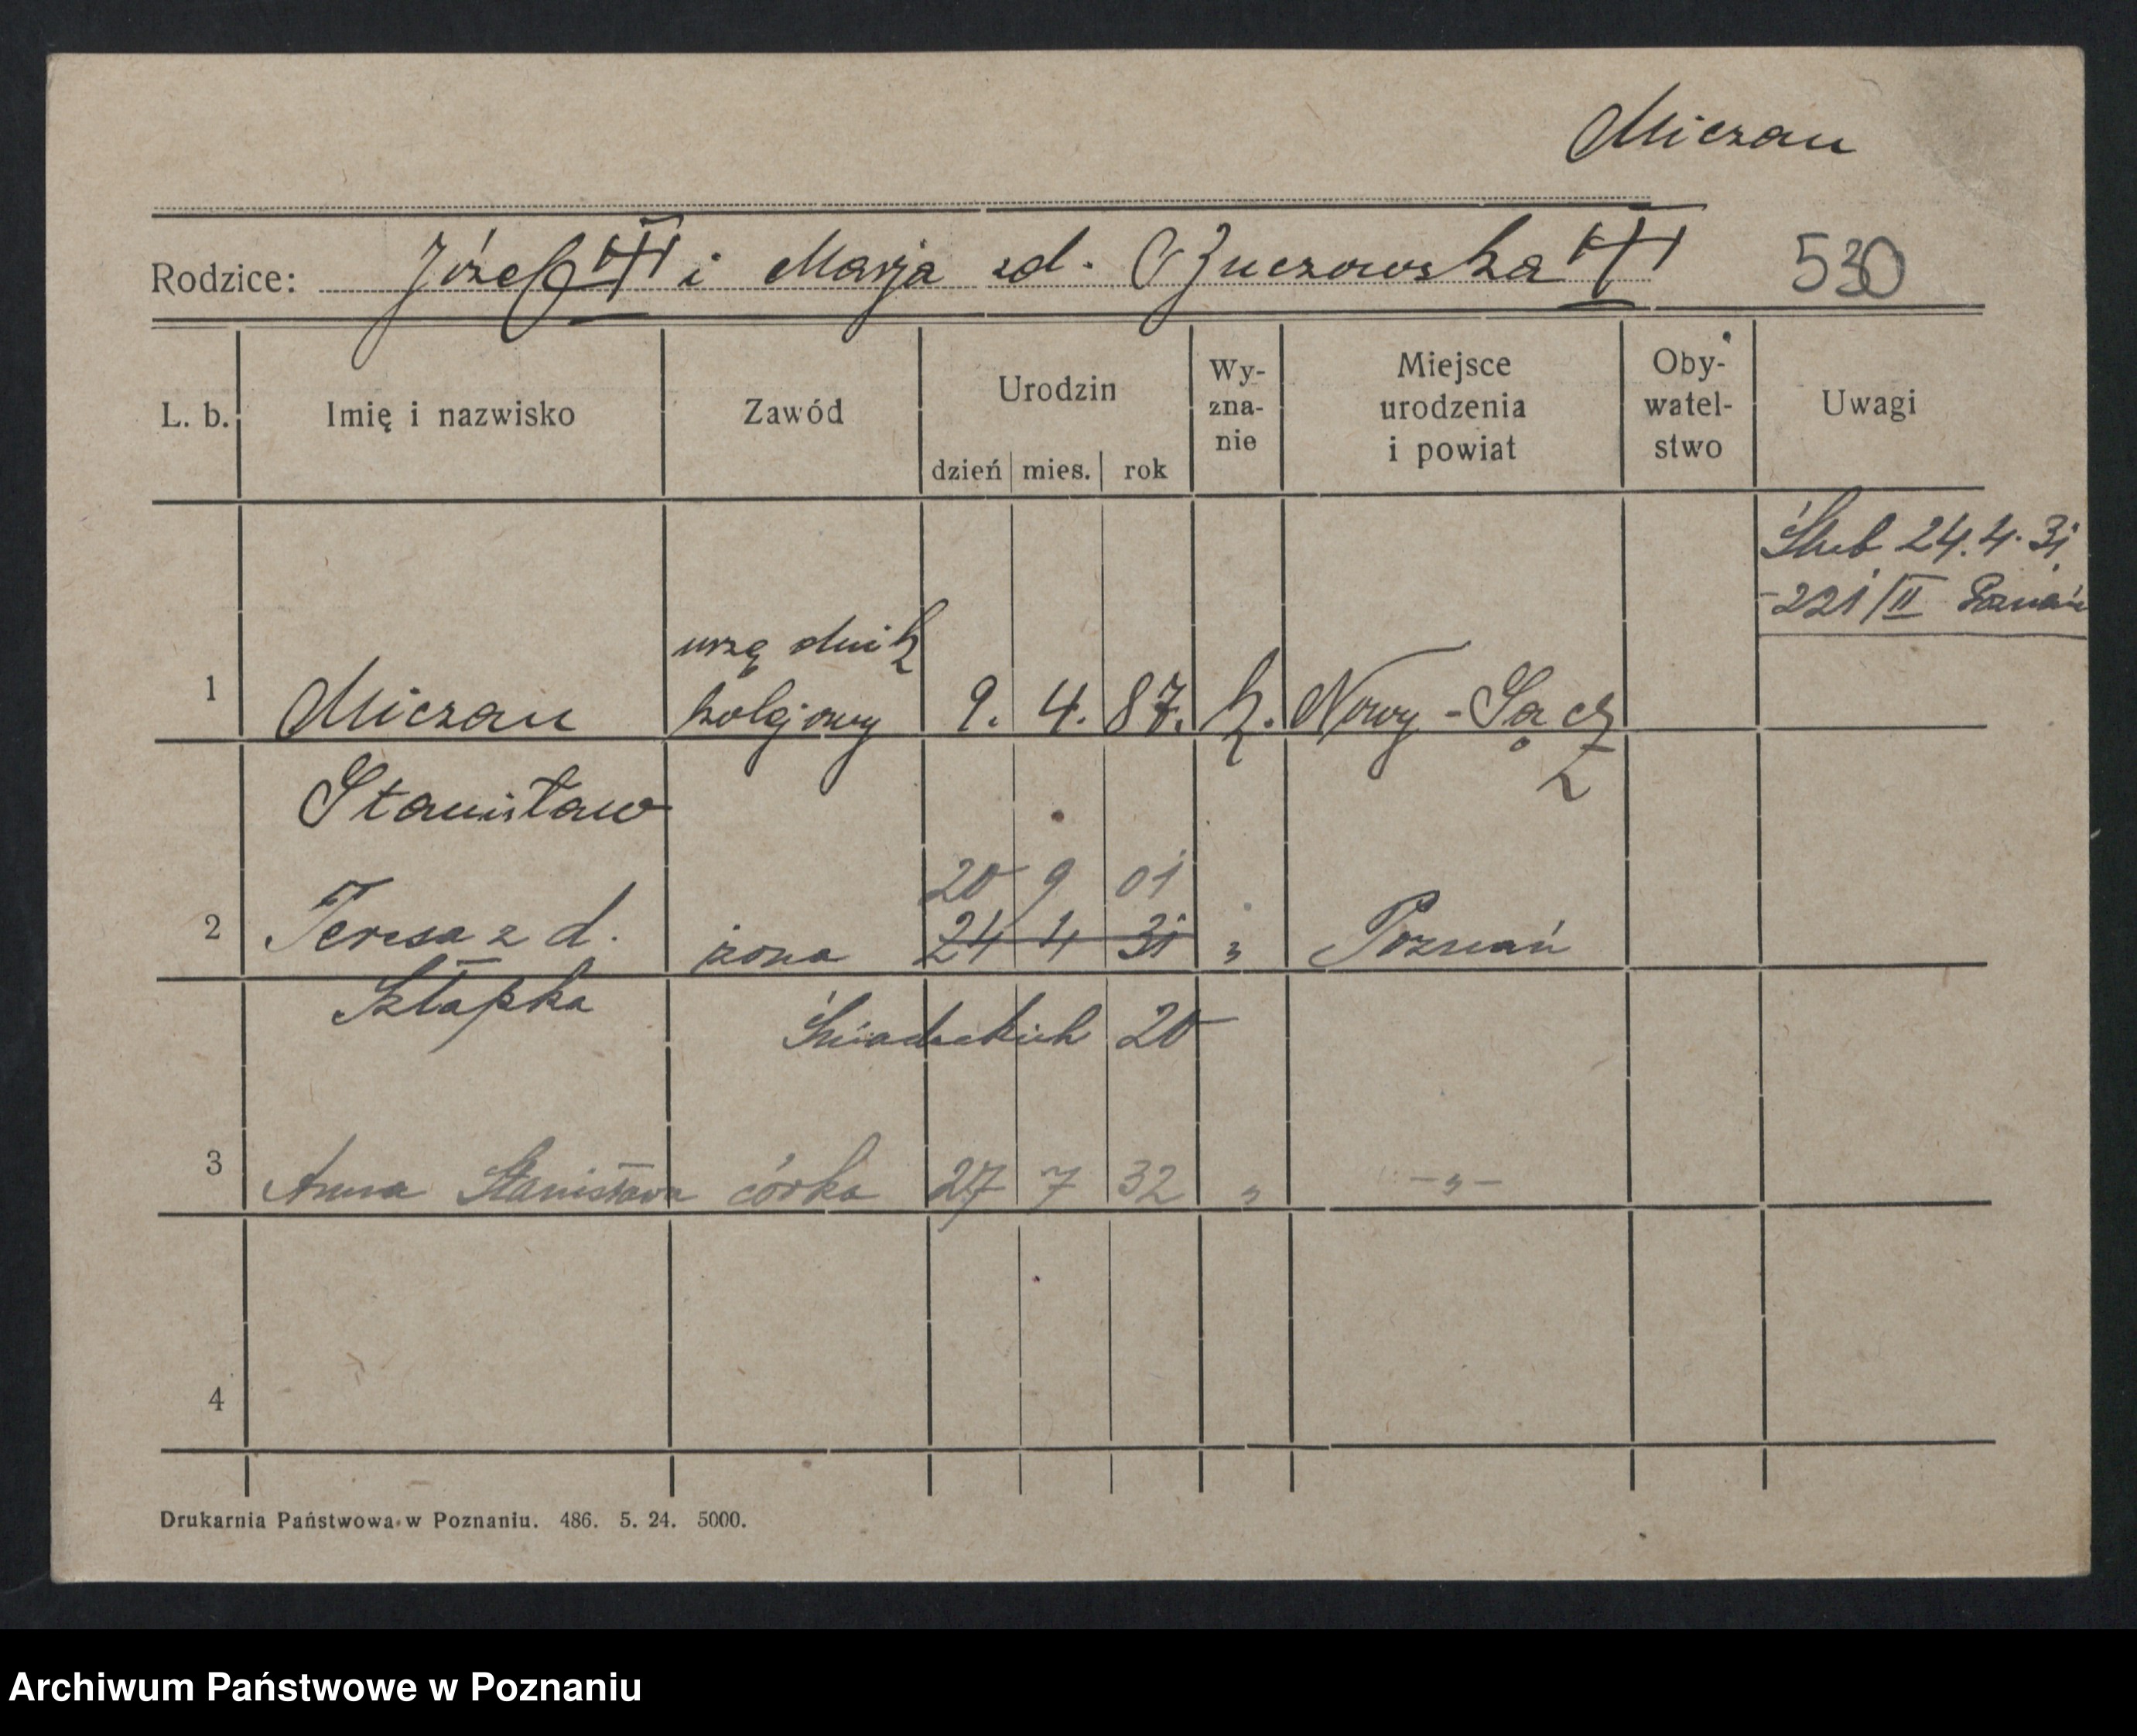 Miczan
Rodzice: Józef i Marja zd. Bzuczowska 530
L. b. Imię i nazwisko Zawód Urodzin dzień mies. rok Wy-zna-nie Miejsce urodzenia i powiat Oby-watel-stwo Uwagi
Ślub 24.4.31
-221/II Poznań
urzędnik
1 Miczan kolejowy 9. 4. 87. k. Nowy-Sącz
Stanisław
20 9 01
2 Teresa z d. żona 24 4 31 " Poznań
Szłapka
Śniadeckich 20
3 Anna Stanisława córka 27 7 32 " -"-
4
Drukarnia Państwowa w Poznaniu. 486. 5. 24. 5000.
Archiwum Państwowe w Poznaniu